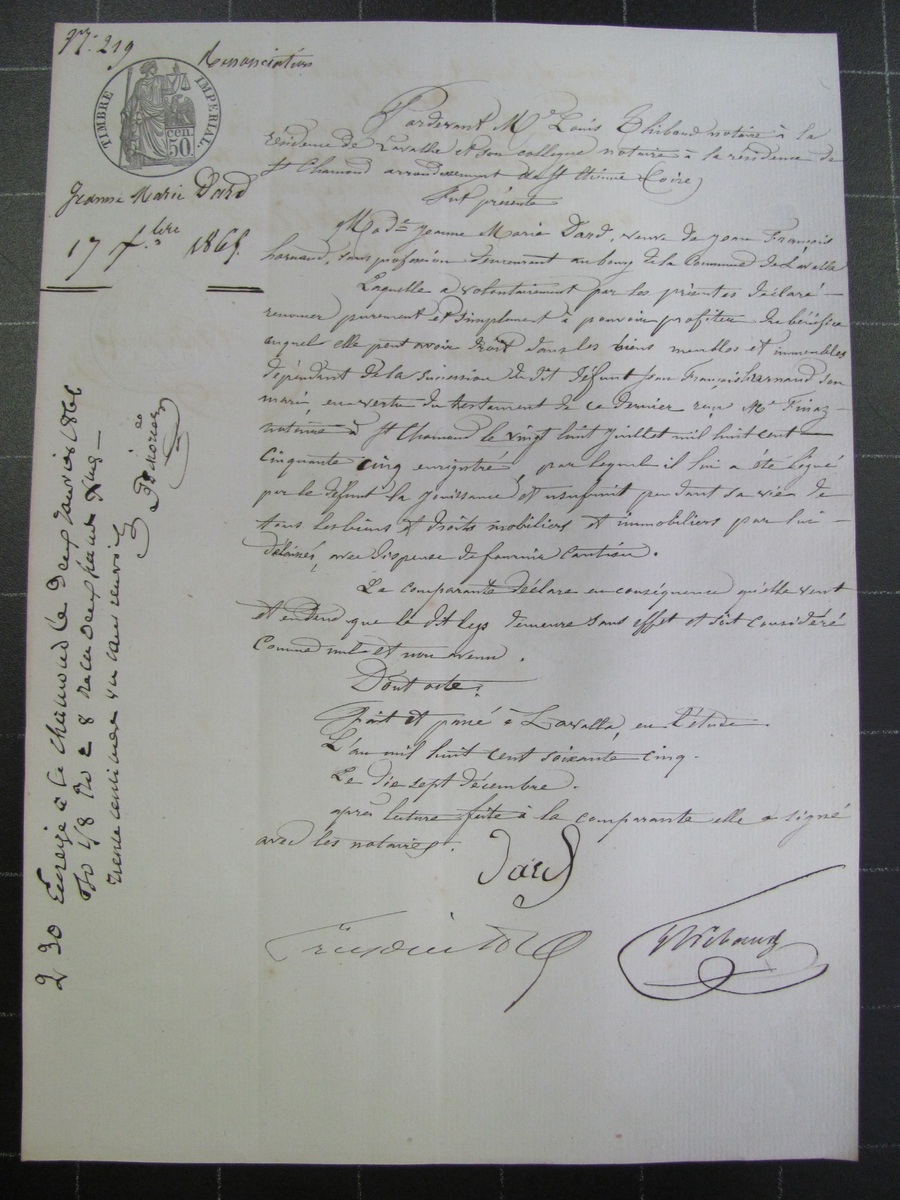 N° 219
Renonciation
TIMBRE IMPERIAL.
50 cen.
Jeanne Marie Dard
17 Xbre 1865.
Pardevant Me Louis Thibaud notaire à la
résidence de Lavalla et son collègue notaire à la résidence de
St Chamond arrondissement de St Etienne (Loire)
Fut présente
Made Jeanne Marie Dard, veuve de Jean François
, sans profession demeurant au bourg de la Commune de Lavalla
Laquelle a volontairement par les présentes déclaré
renoncer purement et simplement à pouvoir profiter du bénéfice
auquel elle peut avoir droit dans les biens meubles et immeubles
dépendant de la succession du dit défunt Jean François son
mari, en vertu du testament de ce dernier reçu Me Finaz
notaire à St Chamond le vingt huit juillet mil huit cent
cinquante cinq enregistré, par lequel il lui a été légué
par le défunt la jouissance et usufruit pendant sa vie de
tous les biens et droits mobiliers et immobiliers par lui
délaissés, avec dispense de fournir caution.
La comparante déclare en conséquence qu'elle veut
et entend que le dit legs demeure sans effet et soit considéré
comme nul et non avenu.
Dont acte.
Fait et passé à Lavalla, en l'étude
L'an mil huit cent soixante cinq.
Le dix sept décembre.
après lecture faite à la comparante elle a signé
avec les notaires.
Dard
Thibaud
2 30 Enregé à St Chamond le deux janvier 1866
fo 48 Ro c 8 reçu deux francs
trente centimes